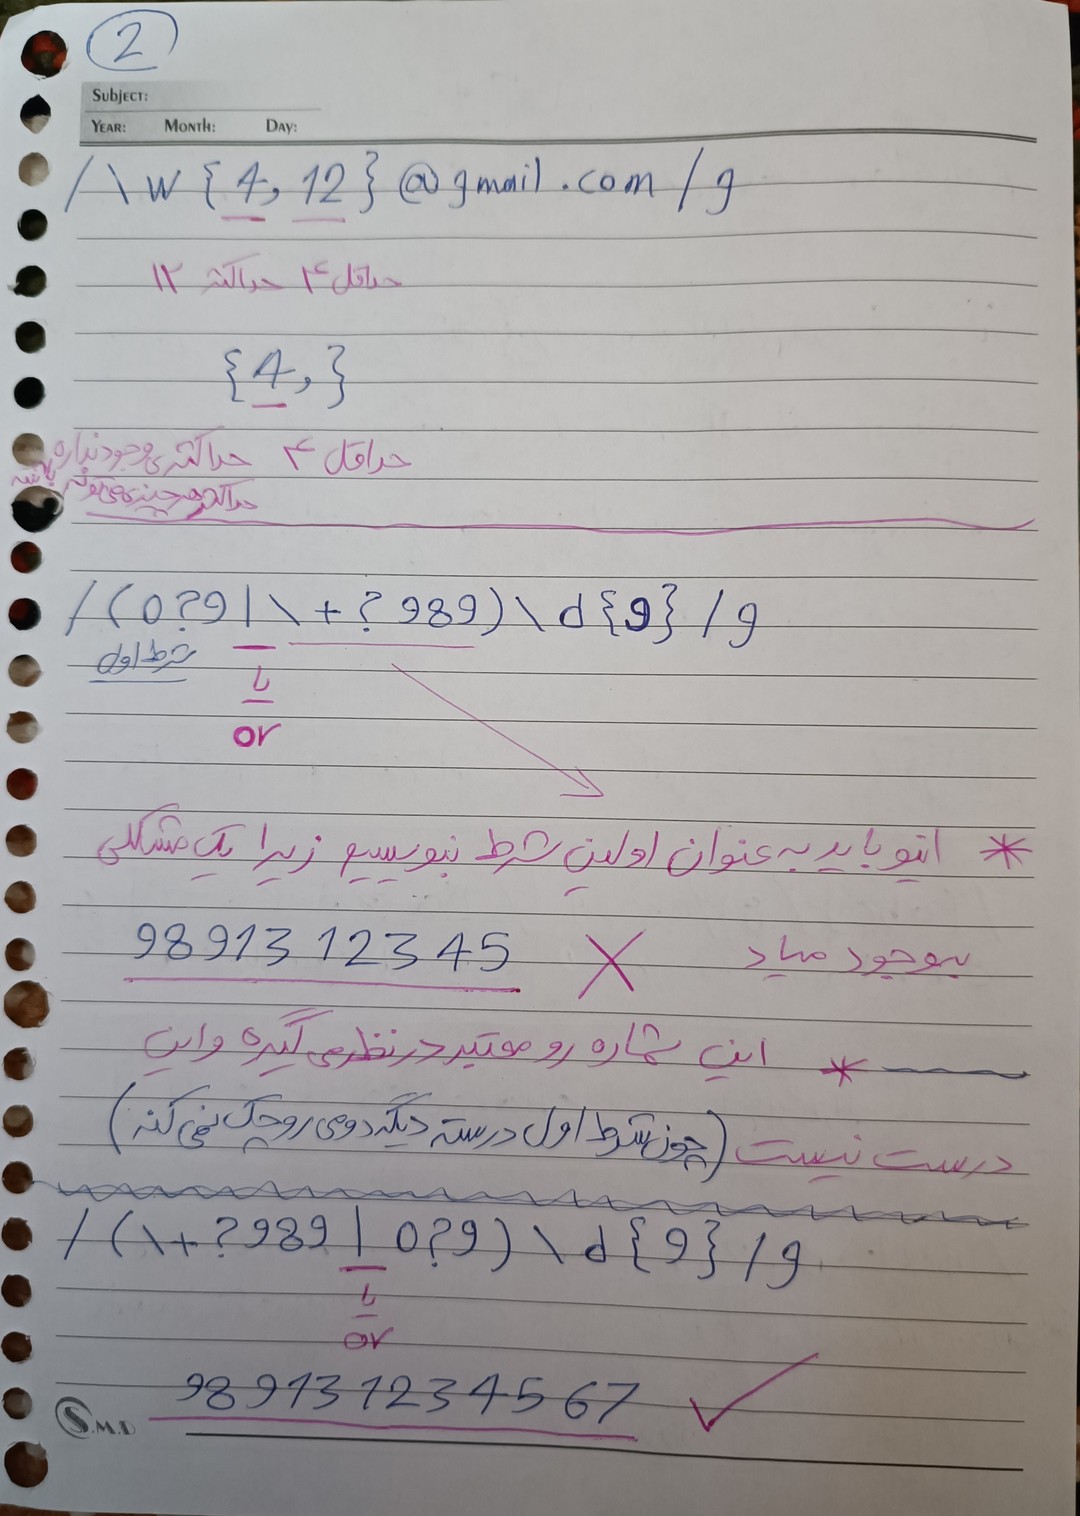 2
Subject:
Year: Month: Day:
/\w{4,12}@gmail.com/g
حداقل ۴ حداکثر ۱۲
{4,}
حداقل ۴ حداکثری وجود نداره
حداکثر هر چیزی می تونه باشه
/(0?9|\+?989)\d{9}/g
شرط اول
یا
or
* اینو باید به عنوان اولین شرط بنویسیم زیرا یک مشکلی
بوجود میاد
98913 12345 X
* این شماره رو معتبر در نظر می گیره و این
درست نیست (چون شرط اول درسته دیگه دومی رو چک نمی کنه)
/(\+?989|0?9)\d{9}/g
یا
or
989131234567 ✓
S.M.D